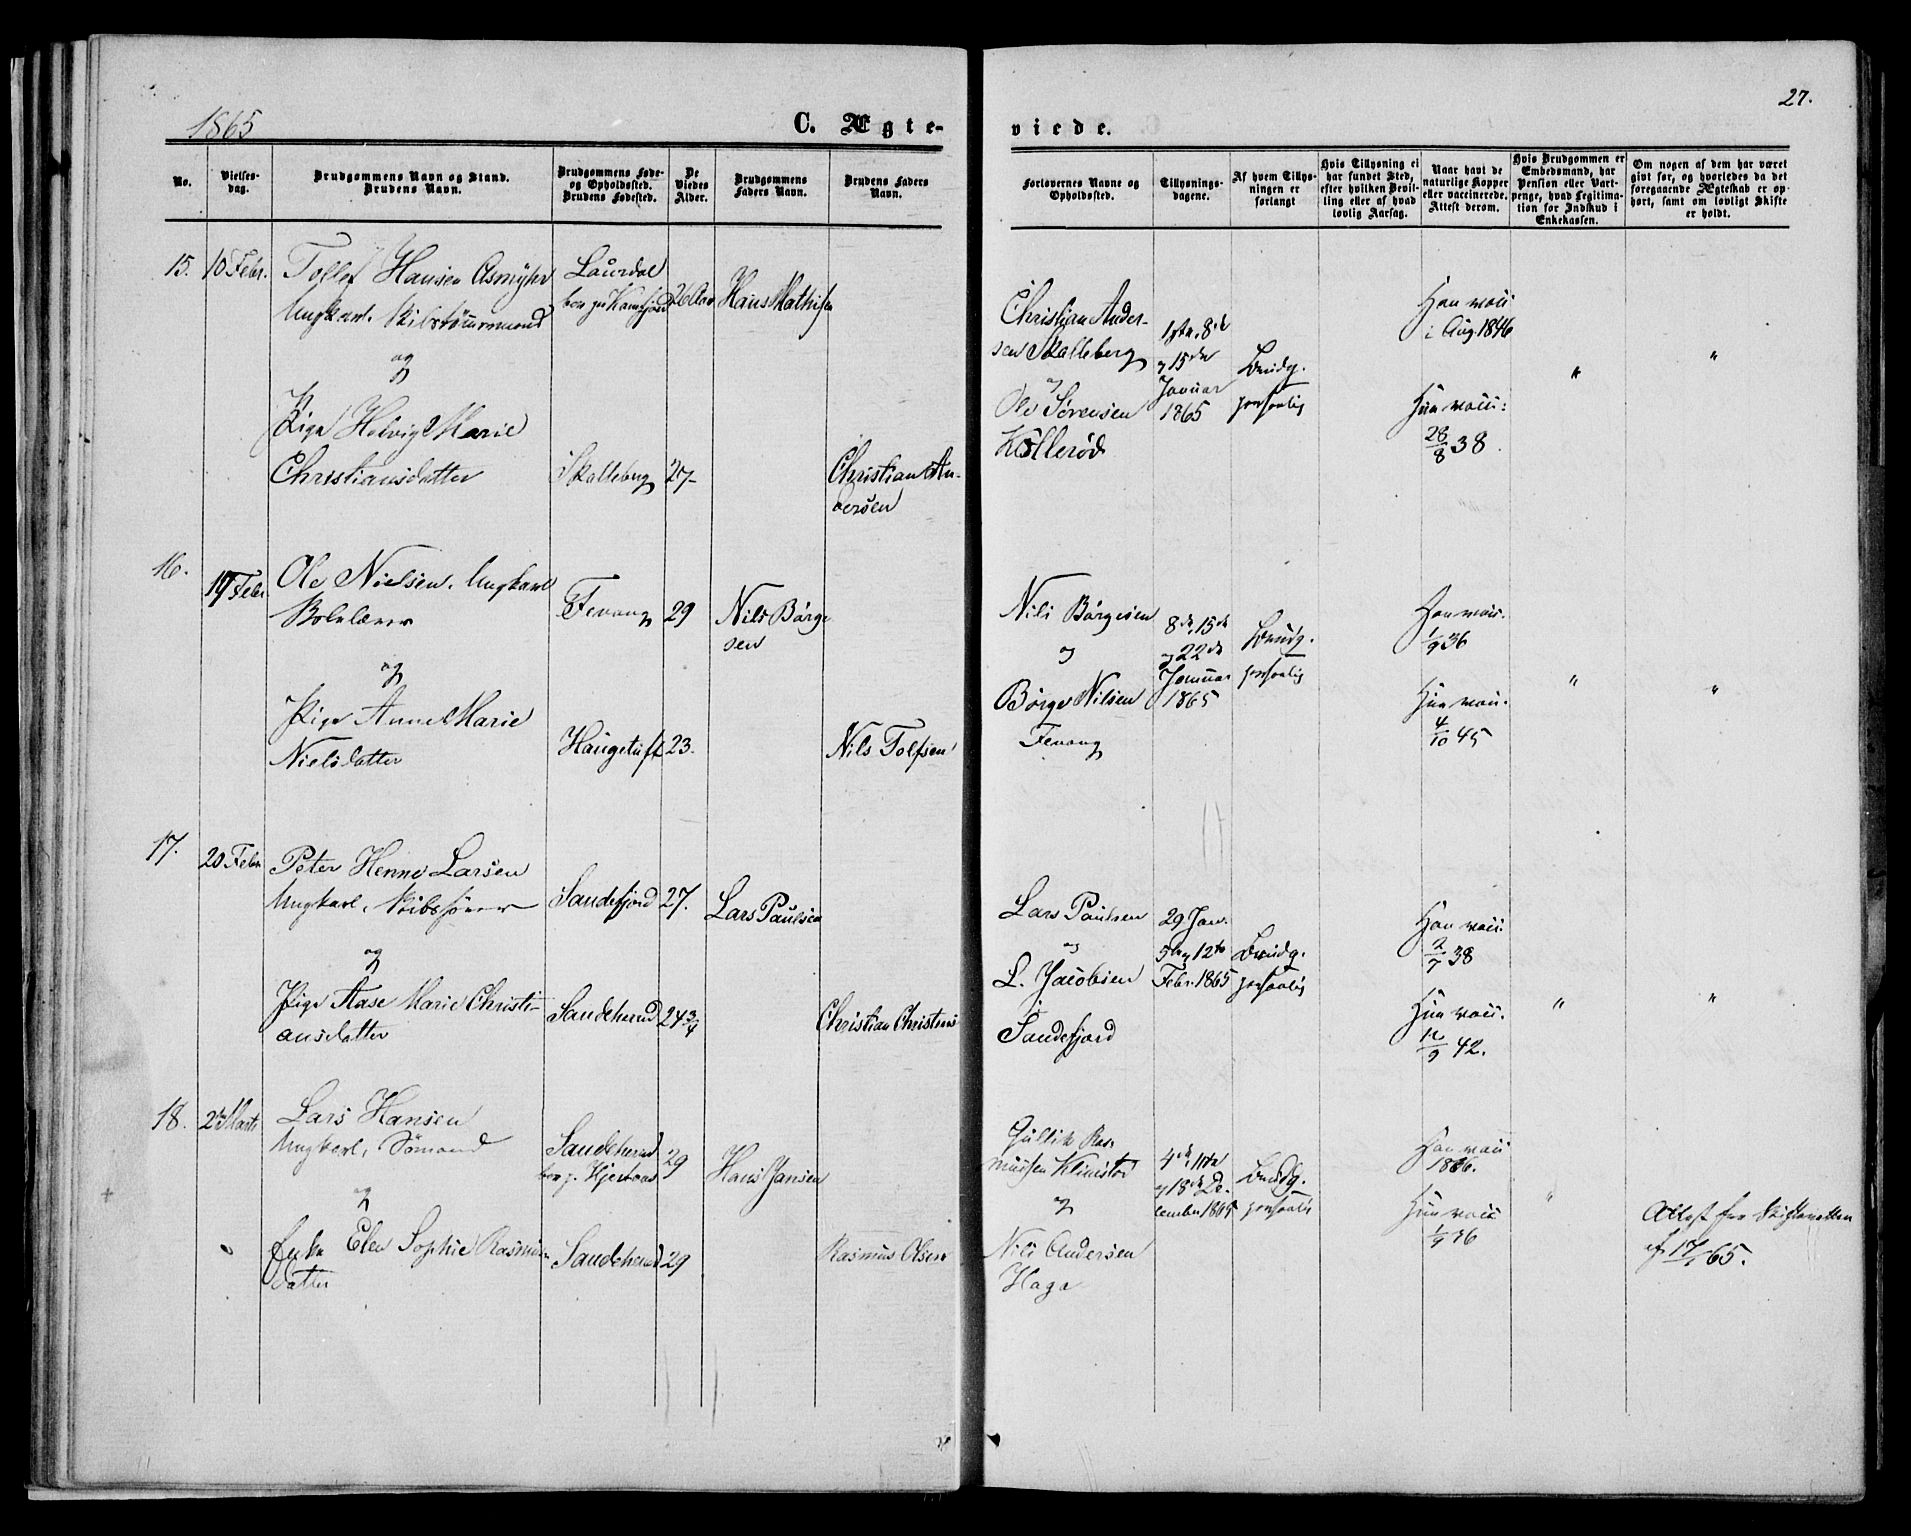 1865
C. Ægte-
No.
Vielses-
dag.
Brudgommens Navn og Stand.
Brudens Navn.
Brudgommens Føde-
og Opholdssted.
Brudens Fødested.
De
Viedes
Alder.
Brudgommens
Faders Navn.
Brudens Faders
Navn.
15.
10 Febr.
Tollef Hansen Asmyhr
Ungkarl. Skibstømmermand
og
Pige Helvig Marie
Christiansdatter
Laurdal
Skalleberg
26 Aar
27
Hans Mathisen
Christian An-
dersen
16.
19 Febr
Ole Nielsen. Ungkarl
og
Pige Anne Marie
Nielsdatter
Fevang
Haugetuft
29
23.
Nils Børge
sen
Nils Tolfsen
17.
20 Febr
Peter Henne Larsen
Ungkarl, Skibsfører
og
Pige Aase Marie Christi-
ansdatter
Sandefjord
Sandeherred
27.
24 3/4
Lars Paulsen
Christian Christens
18.
Marts
Lars Hansen
Ungkarl, Sømand
og
Enke Elen Sophie Rasmus
datter
Sandeherred
Sandeherred
29
29
Hans Jansen
Rasmus Olsen
27.
viede.
Forlovernes Navne og
Opholdssted.
Tillysnings-
dagene.
Af hvem Tillys-
ningen er
forlangt
Hvis Tillysning ei
har fundet Sted,
efter hvilken Bevil-
ling eller af hvad
lovlig Aarsag.
Naar havt de
naturlige Kopper
eller vaccinerede.
Attest derom.
Hvis Brudgommen er
Embedsmand, har
Pension eller Vart-
penge, hvad Legitima-
tion for Indskud i
Enkekassen.
Om nogen af dem har været
givt før, og hvorledes da det
foregaaende Ægteskab er op-
hørt, samt om lovligt Skifte
er holdt.
Christian Ander-
sen Skalleberg
Ole Sørensen
Kollerød
8de
og 15de
Januar
1865
Brudg.
personlig
Han vacc
i Aug. 1846
Hun vacc:
28/8 38.
"
"
Nils Børgesen
og
Børge Nilsen
Fevang
8de, 15de
og 22de
Januar
1865
Brudg.
personlig
Han vacc.
1/9 36
Hun vacc.
4/10 45
"
"
Lars Paulsen
og
L. Jacobsen
i
Sandefjord
29 Jan.
5te og 12te
Febr. 1865
Brudg.
personlig
Han vacc
2/7 38
Hun vacc.
12/9 42.
"
"
Gullik Ras-
mussen
og
Nils Andersen
Haga
4de, 11te
og 18de De-
cember
Brudg.
personlig
Han vacc
Hun vacc
1/9 36
"
Attest fra Skifteretten
af 17/1 65.